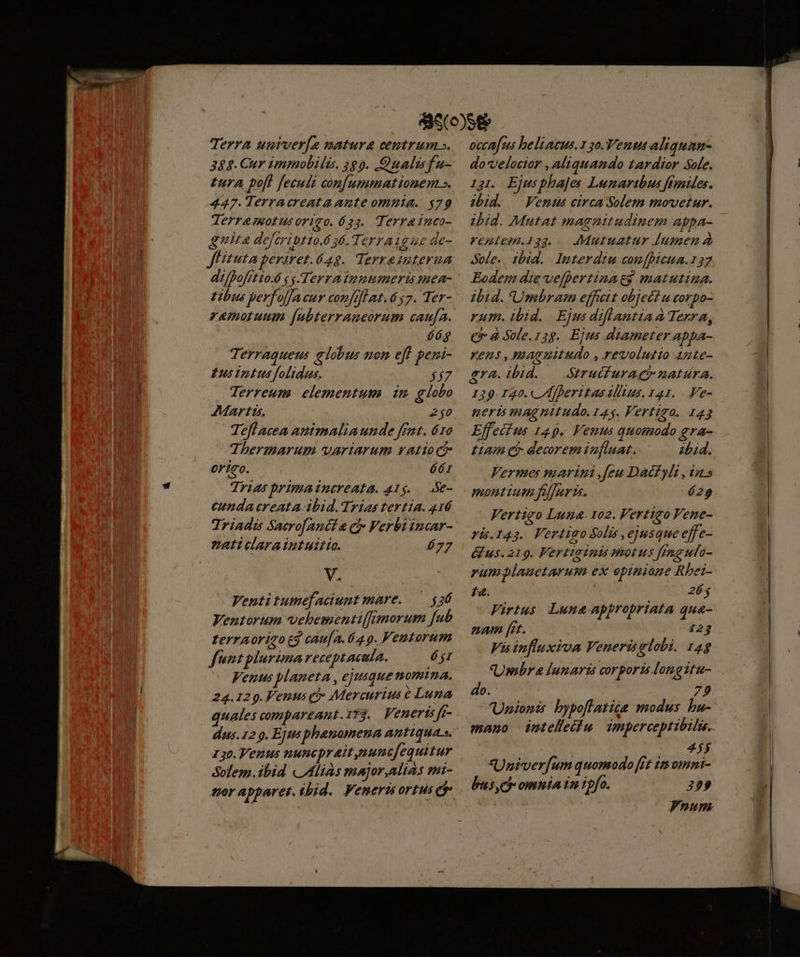 ❧(o)❧
Terra univerſæ naturæ centrum.
388. Cur immobilis. 389. Qualis fu-
tura poſt ſeculi conſummationem.
447. Terra creata ante omnia. 579
Terræ motus origo. 633. Terra inco-
gnita deſcriptio. 636. Terra igne de-
ſtituta periret. 648. Terræ interna
diſpoſitio. 655. Terra innumeris mea-
tibus perfoſſa cur conſiſtat. 657. Ter-
ræmotuum ſubterraneorum cauſa.
668
Terraqueus globus non eſt peni-
tus intus ſolidus. 557
Terreum elementum in globo
Martis, 250
Teſtacea animalia unde ſint. 610
Thermarum variarum ratio &
origo. 661
Trias prima increata. 415. Se-
cunda creata ibid. Trias tertia. 416
Triadis Sacroſanctæ & Verbi incar-
nati clara intuitio. 677
V.
Venti tumefaciunt mare. 536
Ventorum vehementiſſimorum ſub
terra origo & cauſa. 649. Ventorum
ſunt plurima receptacula. 651
Venus planeta, ejusque nomina.
24. 129. Venus & Mercurius è Luna
quales compareant. 173. Veneris ſi-
dus. 129. Ejus phænomena antiqua.
130. Venus nunc præit, nunc ſequitur
Solem. ibid. Aliàs major, aliàs mi-
nor apparet. ibid. Veneris ortus &
occaſus heliacus. 130. Venus aliquan-
do velocior, aliquando tardior Sole.
131. Ejus phaſes Lunaribus ſimiles.
ibid. Venus circa Solem movetur.
ibid. Mutat magnitudinem appa-
rentem. 133. Mutuatur lumen à
Sole. ibid. Interdiu conſpicua. 137
Eodem die veſpertina & matutina.
ibid. Umbram efficit objectu corpo-
rum. ibid. Ejus diſtantia à Terra,
& à Sole. 138. Ejus diameter appa-
rens, magnitudo, revolutio inte-
gra. ibid. Structura & natura.
139. 140. Aſperitas illius. 141. Ve-
neris magnitudo. 145. Vertigo. 143
Effectus 149. Venus quomodo gra-
tiam & decorem influat. ibid.
Vermes marini, ſeu Dactyli, in
montium fiſſuris. 629
Vertigo Lunæ. 102. Vertigo Vene-
ris. 143. Vertigo Solis, ejusque effe-
ctus. 219. Vertiginis motus ſingulo-
rum planetarum ex opinione Rhei-
tæ. 265
Virtus Lunæ appropriata quæ-
nam ſit. 123
Vis influxiva Veneris globi. 148
Umbra lunaris corporis longitu-
do. 79
Unionis hypoſtaticæ modus hu-
mano intellectu imperceptibilis.
455
Univerſum quomodo ſit in omni-
bus, & omnia in ipſo. 399
Vnum